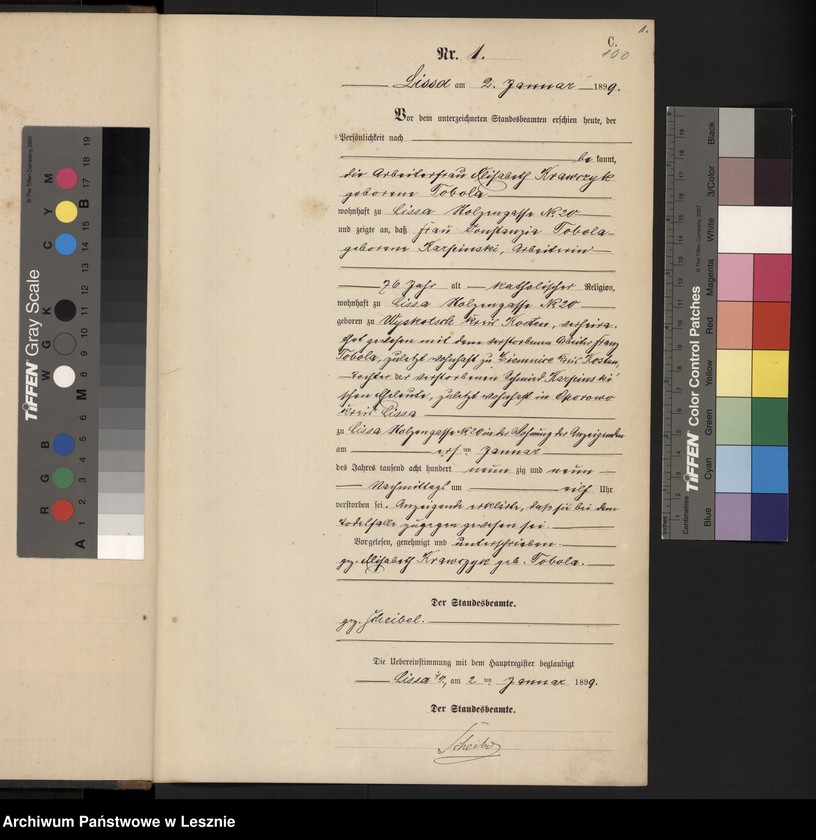 1.
C.
100
Nr. 1.
Lissa am 2. Januar 1899.
Vor dem unterzeichneten Standesbeamten erschien heute, der
Persönlichkeit nach
be kannt,
die Arbeiterfrau Elisabeth Krawczyk
geborene Tobola
wohnhaft zu Lissa Holzengasse No 20
und zeigte an, daß Frau Constanzia Tobola
geborene Karpinski, Arbeiterin
76 Jahr alt katholischer Religion,
wohnhaft zu Lissa Holzengasse No 20
geboren zu Wyskotsch Kreis Kosten, verheira-
thet gewesen mit dem verstorbenen Arbeiter Franz
Tobola, zuletzt wohnhaft zu Ziemnice Kreis Kosten,
Tochter der verstorbenen Schmied Karpinski-
schen Eheleute, zuletzt wohnhaft in Oporowo
Kreis Lissa
zu Lissa Holzengasse No 20 in der Wohnung der Anzeigenden
am ersten Januar
des Jahres tausend acht hundert neun zig und neun
Nachmittags um eilf Uhr
verstorben sei. Anzeigende erklärte, daß sie bei dem
Todesfalle zugegen gewesen sei.
Vorgelesen, genehmigt und unterschrieben.
gez. Elisabeth Krawczyk geb. Tobola.
Der Standesbeamte.
gez. Scheibel.
Die Uebereinstimmung mit dem Hauptregister beglaubigt
Lissa am 2 ten Januar 1899.
Der Standesbeamte.
Scheibel
TIFFEN Gray Scale
© The Tiffen Company, 2007
R G B W G K C Y M
A 1 2 3 4 5 6 M 8 9 10 11 12 13 14 15 B 17 18 19
TIFFEN Color Control Patches
© The Tiffen Company, 2007
Centimetres
Inches
Blue
Cyan
Green
Yellow
Red
Magenta
White
3/Color
Black
Archiwum Państwowe w Lesznie